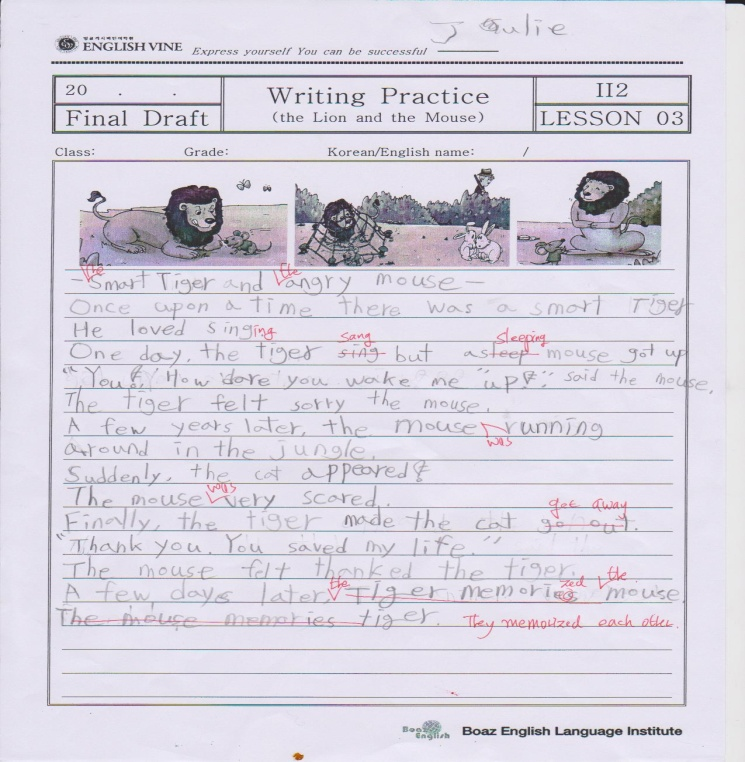 J Julie
잉글리시바인어학원
ENGLISH VINE Express yourself You can be successful
20 . .
Final Draft
Writing Practice
(the Lion and the Mouse)
II2
LESSON 03
Class: Grade: Korean/English name: /
the the
- Smart Tiger and angry mouse -
Once upon a time there was a smart Tiger
He loved singing
sang sleeping
One day, the tiger sing but asleep mouse got up
"You! How dare you wake me "up!" said the mouse.
The tiger felt sorry the mouse.
A few years later, the mouse running
was
around in the jungle.
Suddenly, the cat appeared!
was
The mouse very scared.
get away
Finally, the tiger made the cat go out.
"Thank you. You saved my life."
The mouse felt thanked the tiger.
the zed the
A few days later Tiger memories mouse.
The mouse memories tiger. They memorized each other.
Boaz English Boaz English Language Institute